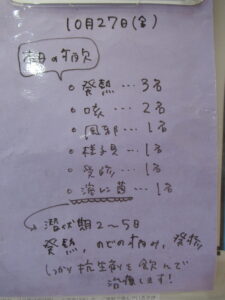 10月27日(金)
本日の病欠
発熱…3名
咳…2名
風邪…1名
様子見…1名
受診…1名
溶レン菌…1名
潜伏期2～5日
発熱,のどの痛み,発疹
しっかり抗生剤を飲んで
治療します!